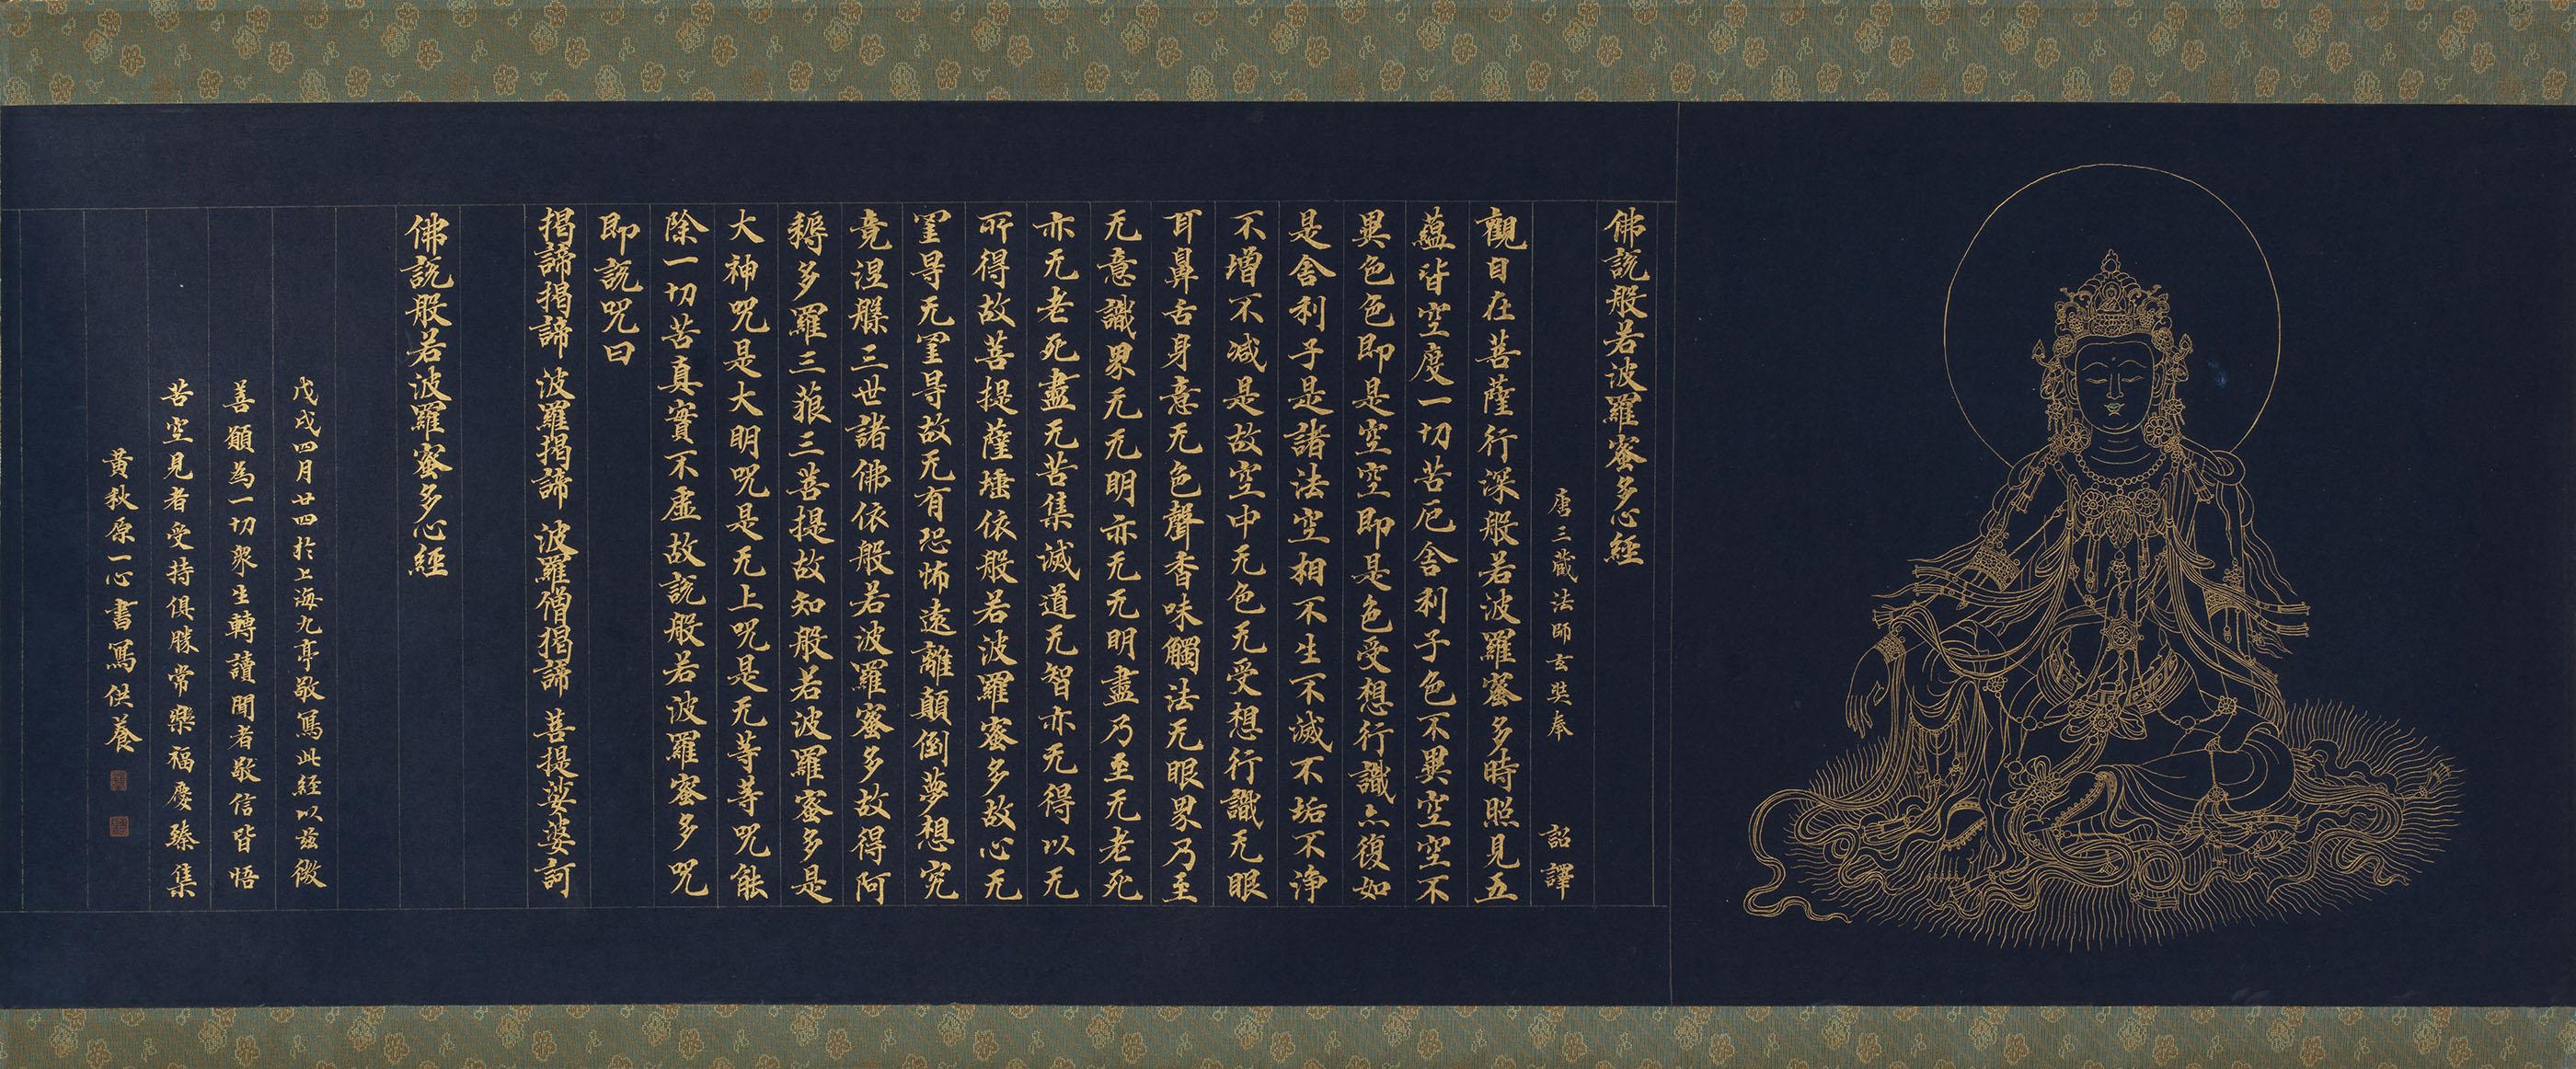 佛説般若波羅蜜多心經
唐三藏法師玄奘奉 詔譯
觀自在菩薩行深般若波羅蜜多時照見五
蘊皆空度一切苦厄舍利子色不異空空不
異色色即是空空即是色受想行識亦復如
是舍利子是諸法空相不生不滅不垢不淨
不增不減是故空中无色无受想行識无眼
耳鼻舌身意无色聲香味觸法无眼界乃至
无意識界无无明亦无无明盡乃至无老死
亦无老死盡无苦集滅道无智亦无得以无
所得故菩提薩埵依般若波羅蜜多故心无
罣㝵无罣㝵故无有恐怖遠離顛倒夢想究
竟涅槃三世諸佛依般若波羅蜜多故得阿
耨多羅三藐三菩提故知般若波羅蜜多是
大神咒是大明咒是无上咒是无等等咒能
除一切苦真實不虛故説般若波羅蜜多咒
即説咒曰
揭諦揭諦 波羅揭諦 波羅僧揭諦 菩提娑婆訶
佛説般若波羅蜜多心經
戊戌四月廿四於上海九亭敬寫此經以茲微
善願為一切眾生轉讀聞者敬信皆悟
苦空見者受持俱勝常樂福慶臻集
黃秋原一心書寫供養